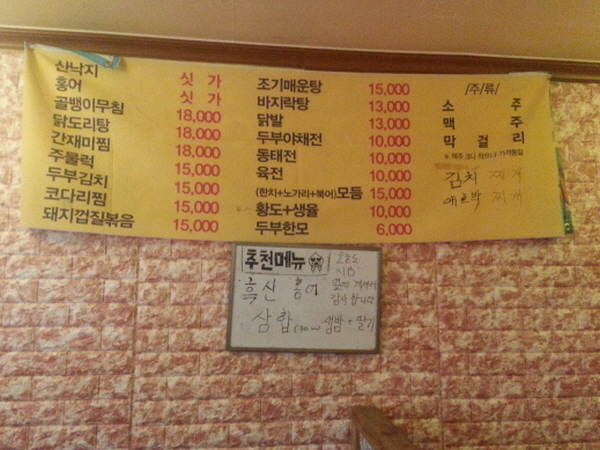 산낙지 싯 가
홍어 싯 가
골뱅이무침 18,000
닭도리탕 18,000
간재미찜 18,000
주물럭 15,000
두부김치 15,000
코다리찜 15,000
돼지껍질볶음 15,000
조기매운탕 15,000
바지락탕 13,000
닭발 13,000
두부야채전 10,000
동태전 10,000
육전 10,000
(한치+노가리+북어)모듬 15,000
황도+생율 10,000
두부한모 6,000
/주/류/
소 주
맥 주
막 걸 리
※ 맥주 크나 작으나 가격동일
김치 찌개
애호박 찌개
추천메뉴
흑산 홍어
삼합
생밤 + 딸기
감사합니다